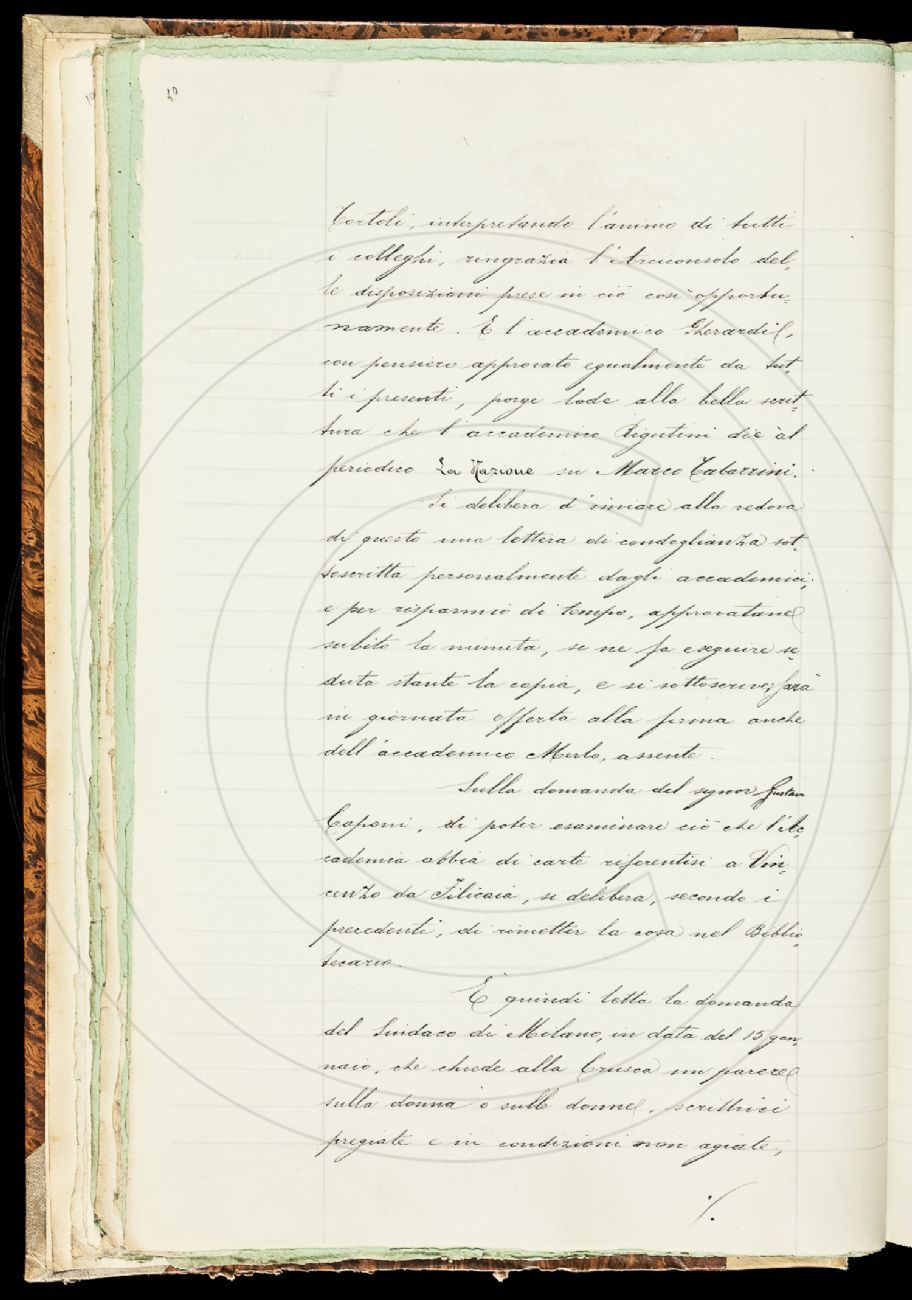 40
Tortoli, interpretando l'animo di tutti
i colleghi, ringrazia l'Arciconsolo del-
le disposizioni prese in ciò così opportu-
namente. E l'accademico Gherardi,
con pensiero approvato egualmente da tut-
ti i presenti, porge lode alla bella scrit-
tura che l'accademico Rigutini diè al
periodico La Nazione su Marco Tabarrini.
Si delibera d'inviare alla vedova
di questo una lettera di condoglianza sot-
toscritta personalmente dagli accademici;
e per risparmio di tempo, approvatane
subito la minuta, se ne fa eseguire se-
duta stante la copia, e si sottoscrive; sarà
in giornata offerta alla firma anche
dell'accademico Merlo, assente.
Sulla domanda del signor Gustavo
Caponi, di poter esaminare ciò che l'Ac-
cademia abbia di carte riferentisi a Vin-
cenzo da Filicaia, si delibera, secondo i
precedenti, di rimetter la cosa nel Biblio-
tecario.
È quindi letta la domanda
del Sindaco di Milano, in data del 15 gen-
naio, che chiede alla Crusca un parere
sulla donna o sulle donne, scrittrici
pregiate e in condizioni non agiate,
./.